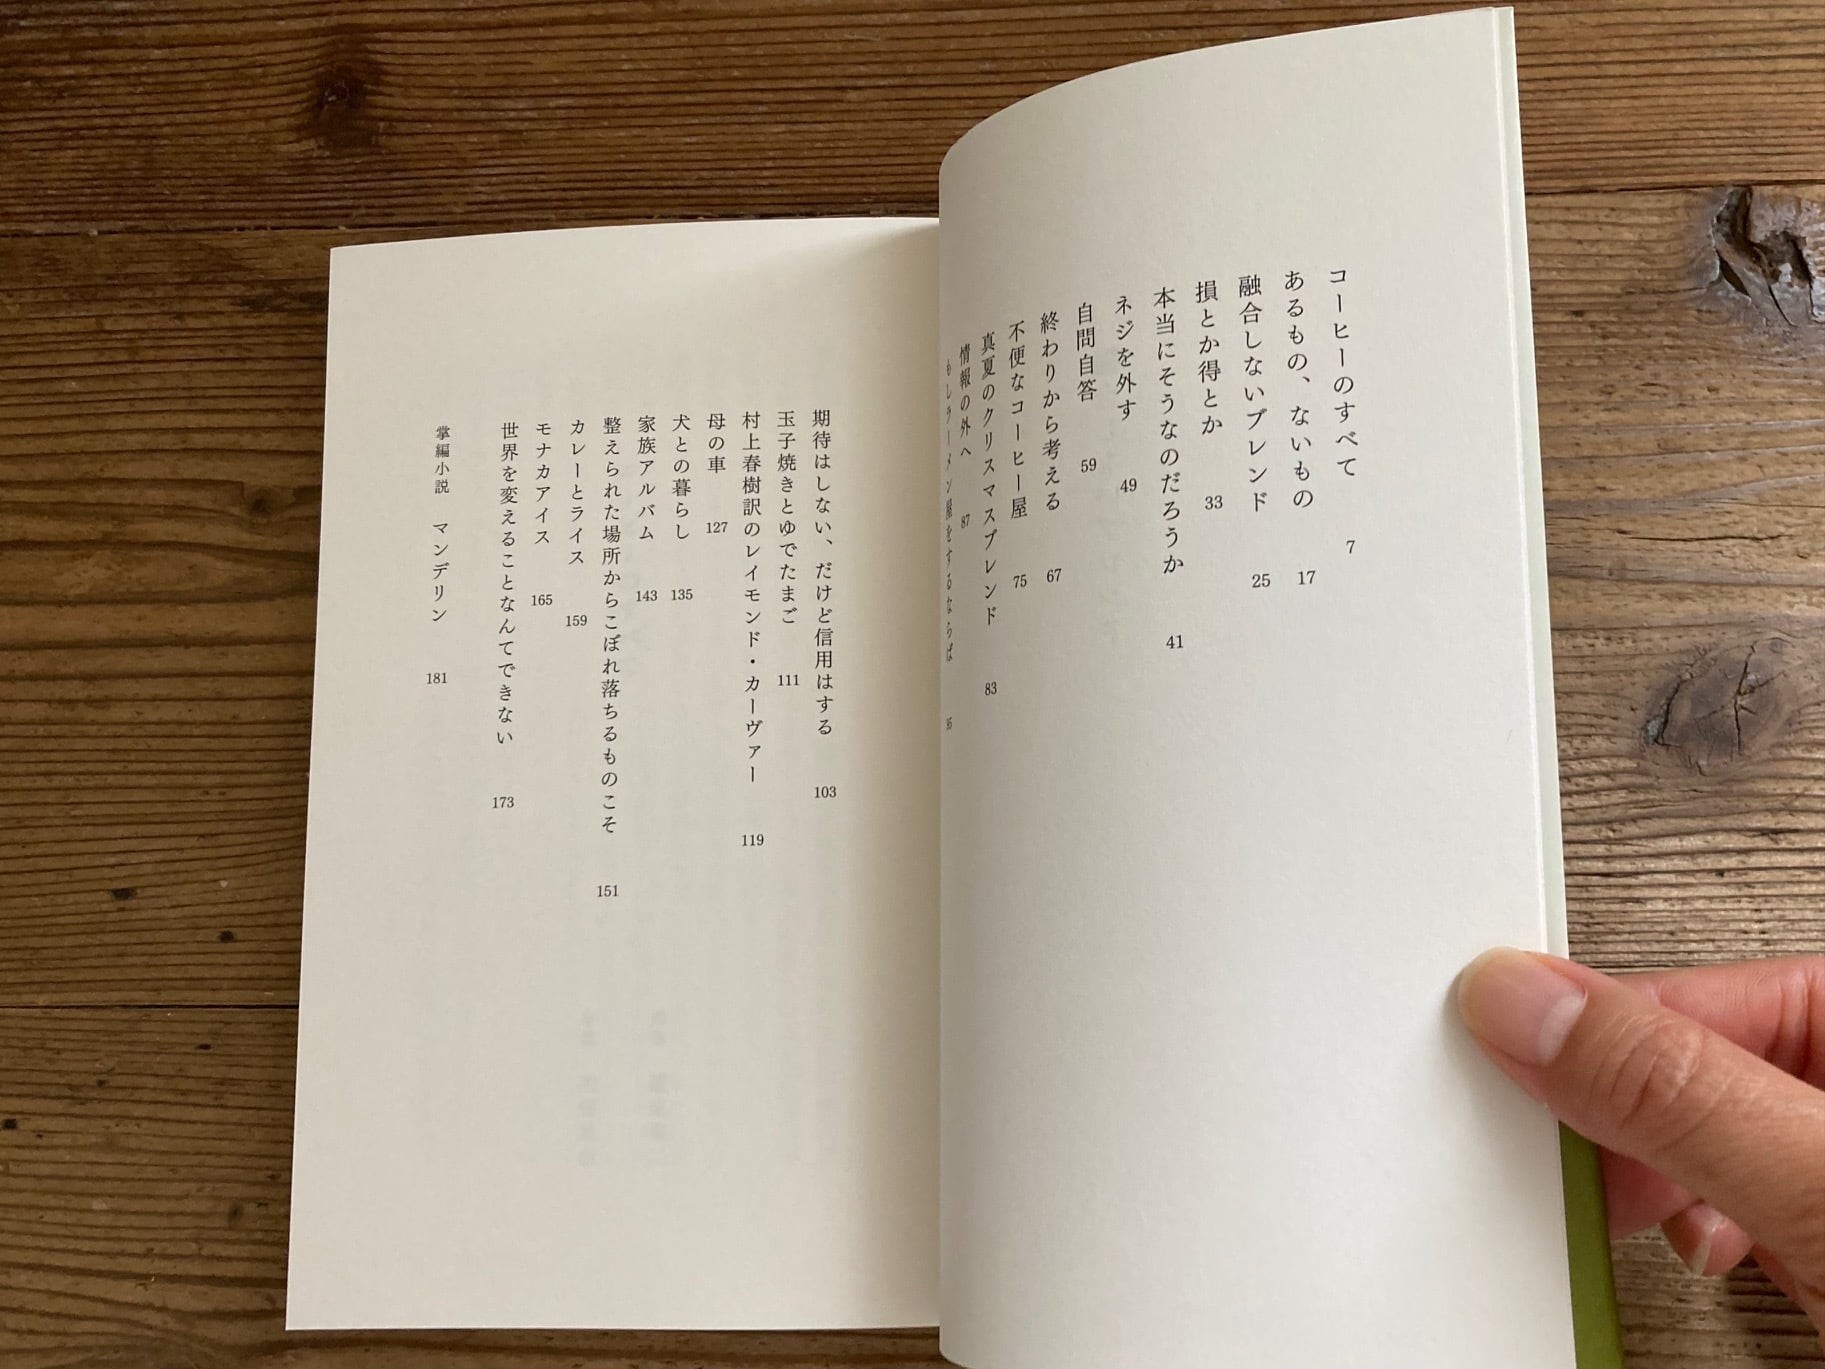 コーヒーのすべて 7
あるもの、ないもの 17
融合しないブレンド 25
損とか得とか 33
本当にそうなのだろうか 41
ネジを外す 49
自問自答 59
終わりから考える 67
不便なコーヒー屋 75
真夏のクリスマスブレンド 83
情報の外へ 87
もしラーメン屋をするならば 95
期待はしない、だけど信用はする 103
玉子焼きとゆでたまご 111
村上春樹訳のレイモンド・カーヴァー 119
母の車 127
犬との暮らし 135
家族アルバム 143
整えられた場所からこぼれ落ちるものこそ 151
カレーとライス 159
モナカアイス 165
世界を変えることなんてできない 173
掌編小説 マンデリン 181